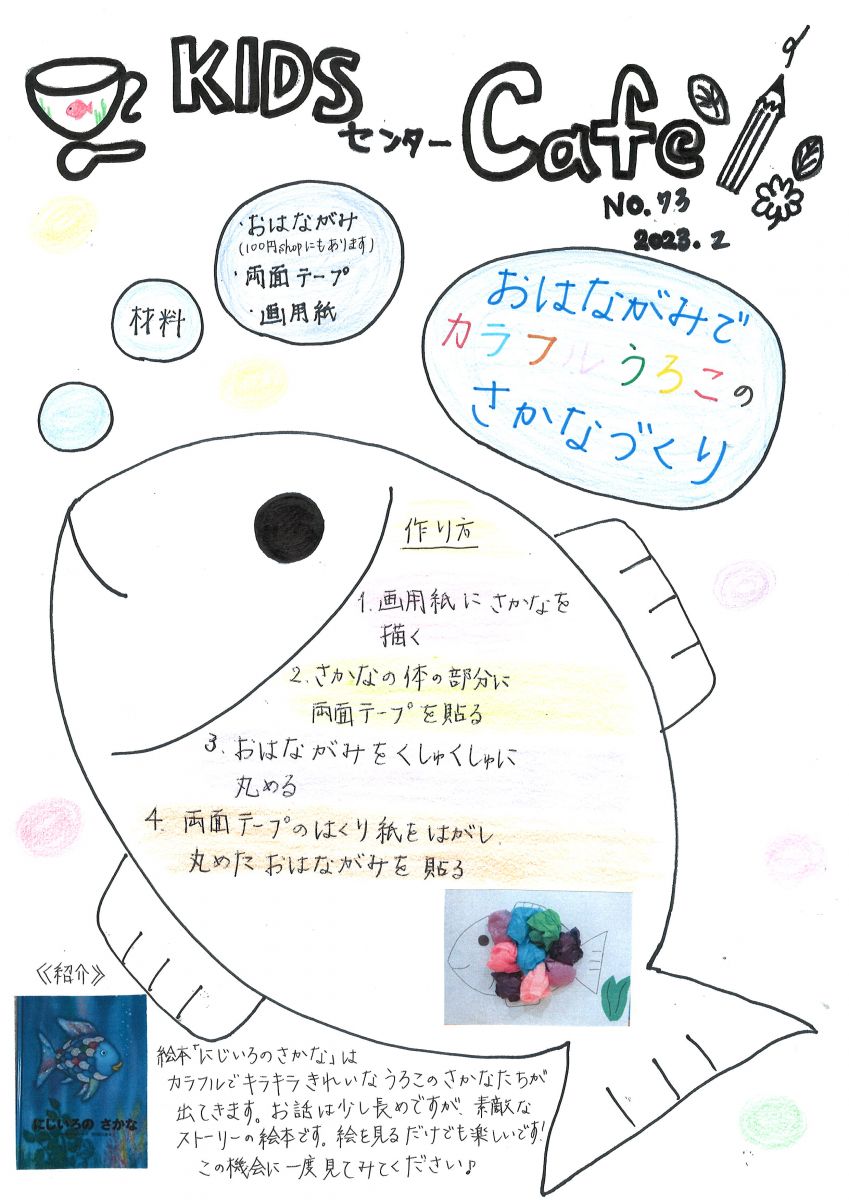 KIDS
センター Cafe
NO.73
2023.2
・おはながみ
(100円shopにもあります)
・両面テープ
・画用紙
材料
おはながみで
カラフルうろこの
さかなづくり
作り方
1. 画用紙にさかなを
描く
2. さかなの体の部分に
両面テープを貼る
3. おはながみをくしゅくしゅに
丸める
4. 両面テープのはくり紙をはがし、
丸めたおはながみを貼る
《紹介》
にじいろの さかな
絵本「にじいろのさかな」は
カラフルでキラキラきれいなうろこのさかなたちが
出てきます。お話は少し長めですが、素敵な
ストーリーの絵本です。絵を見るだけでも楽しいです!
この機会に一度見てみてください♪